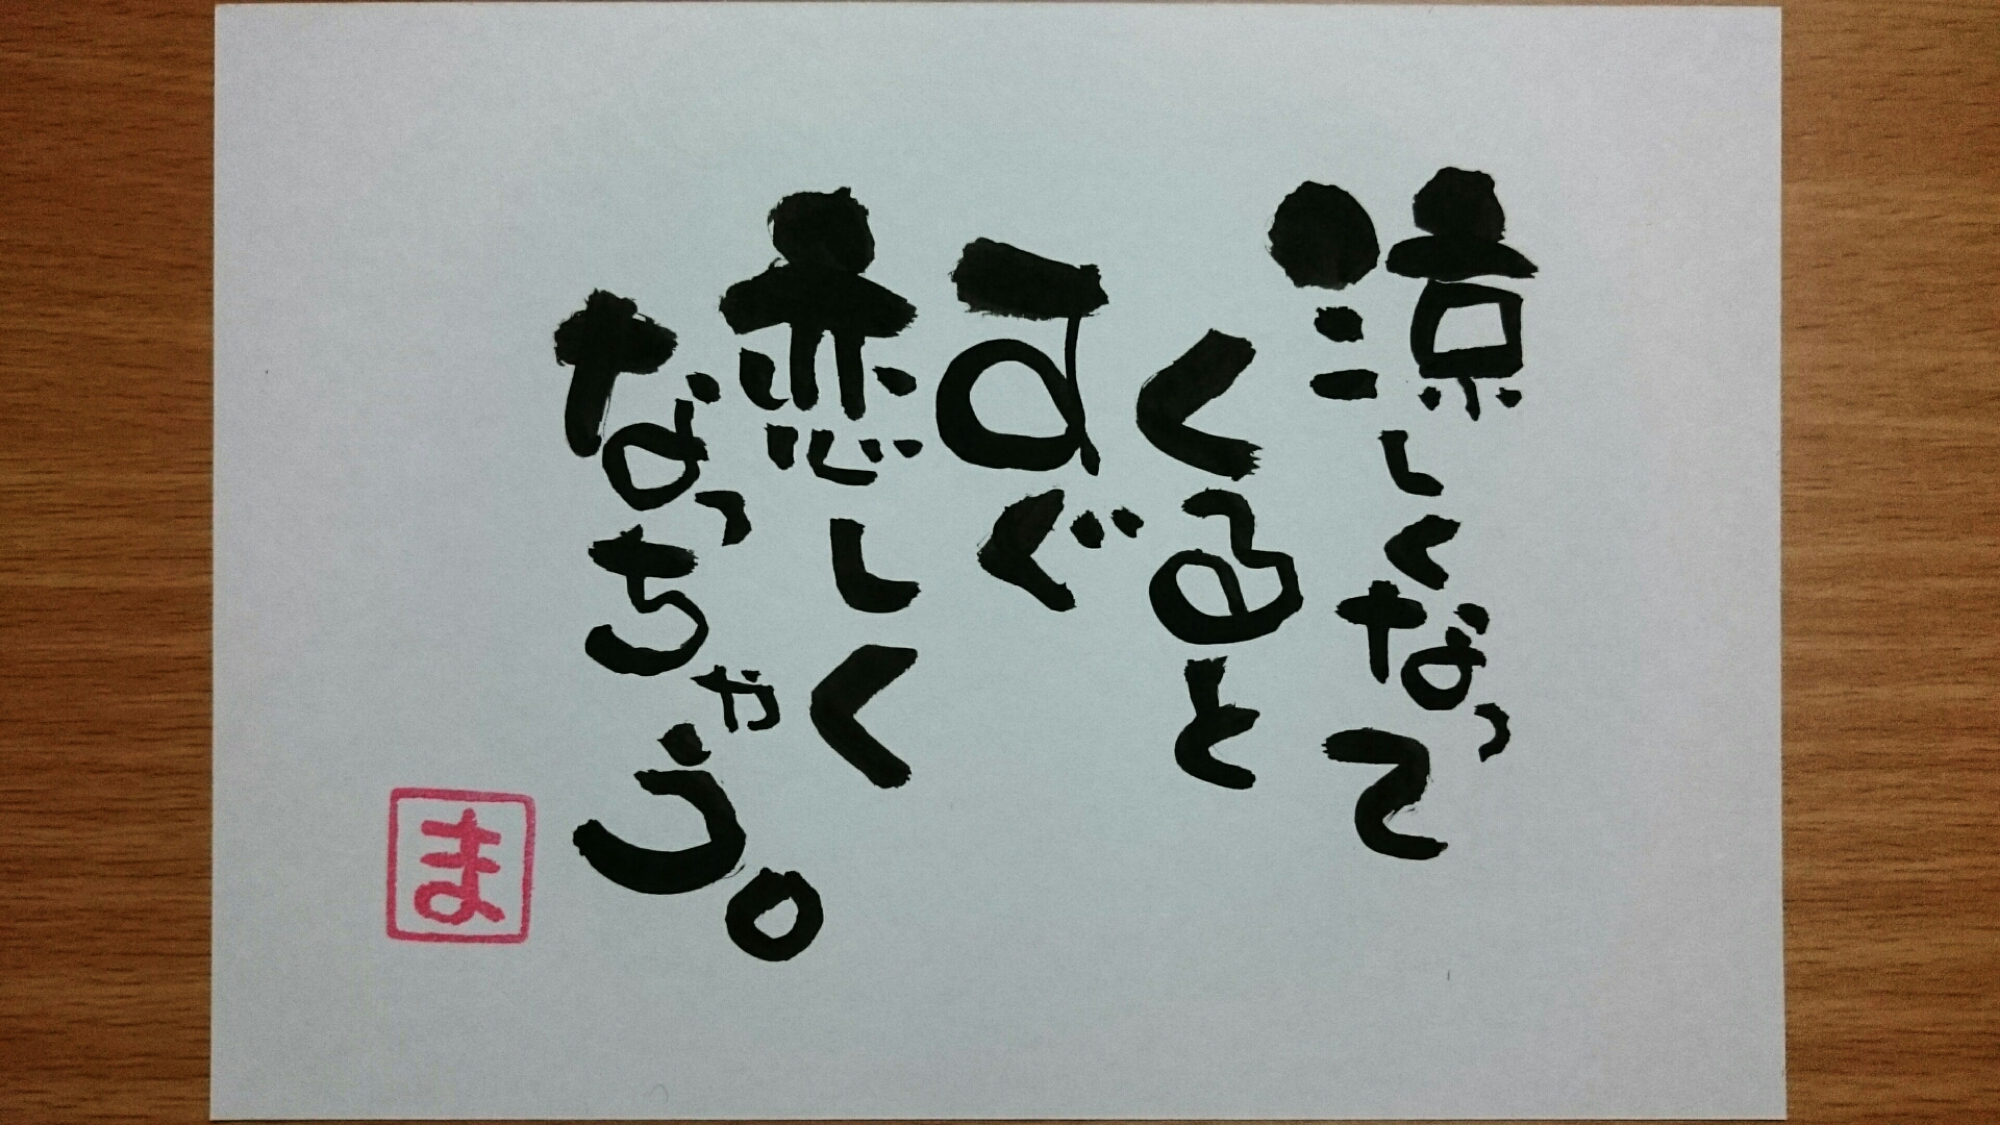 涼しくなって
くると
すぐ
恋しく
なっちゃう。
ま